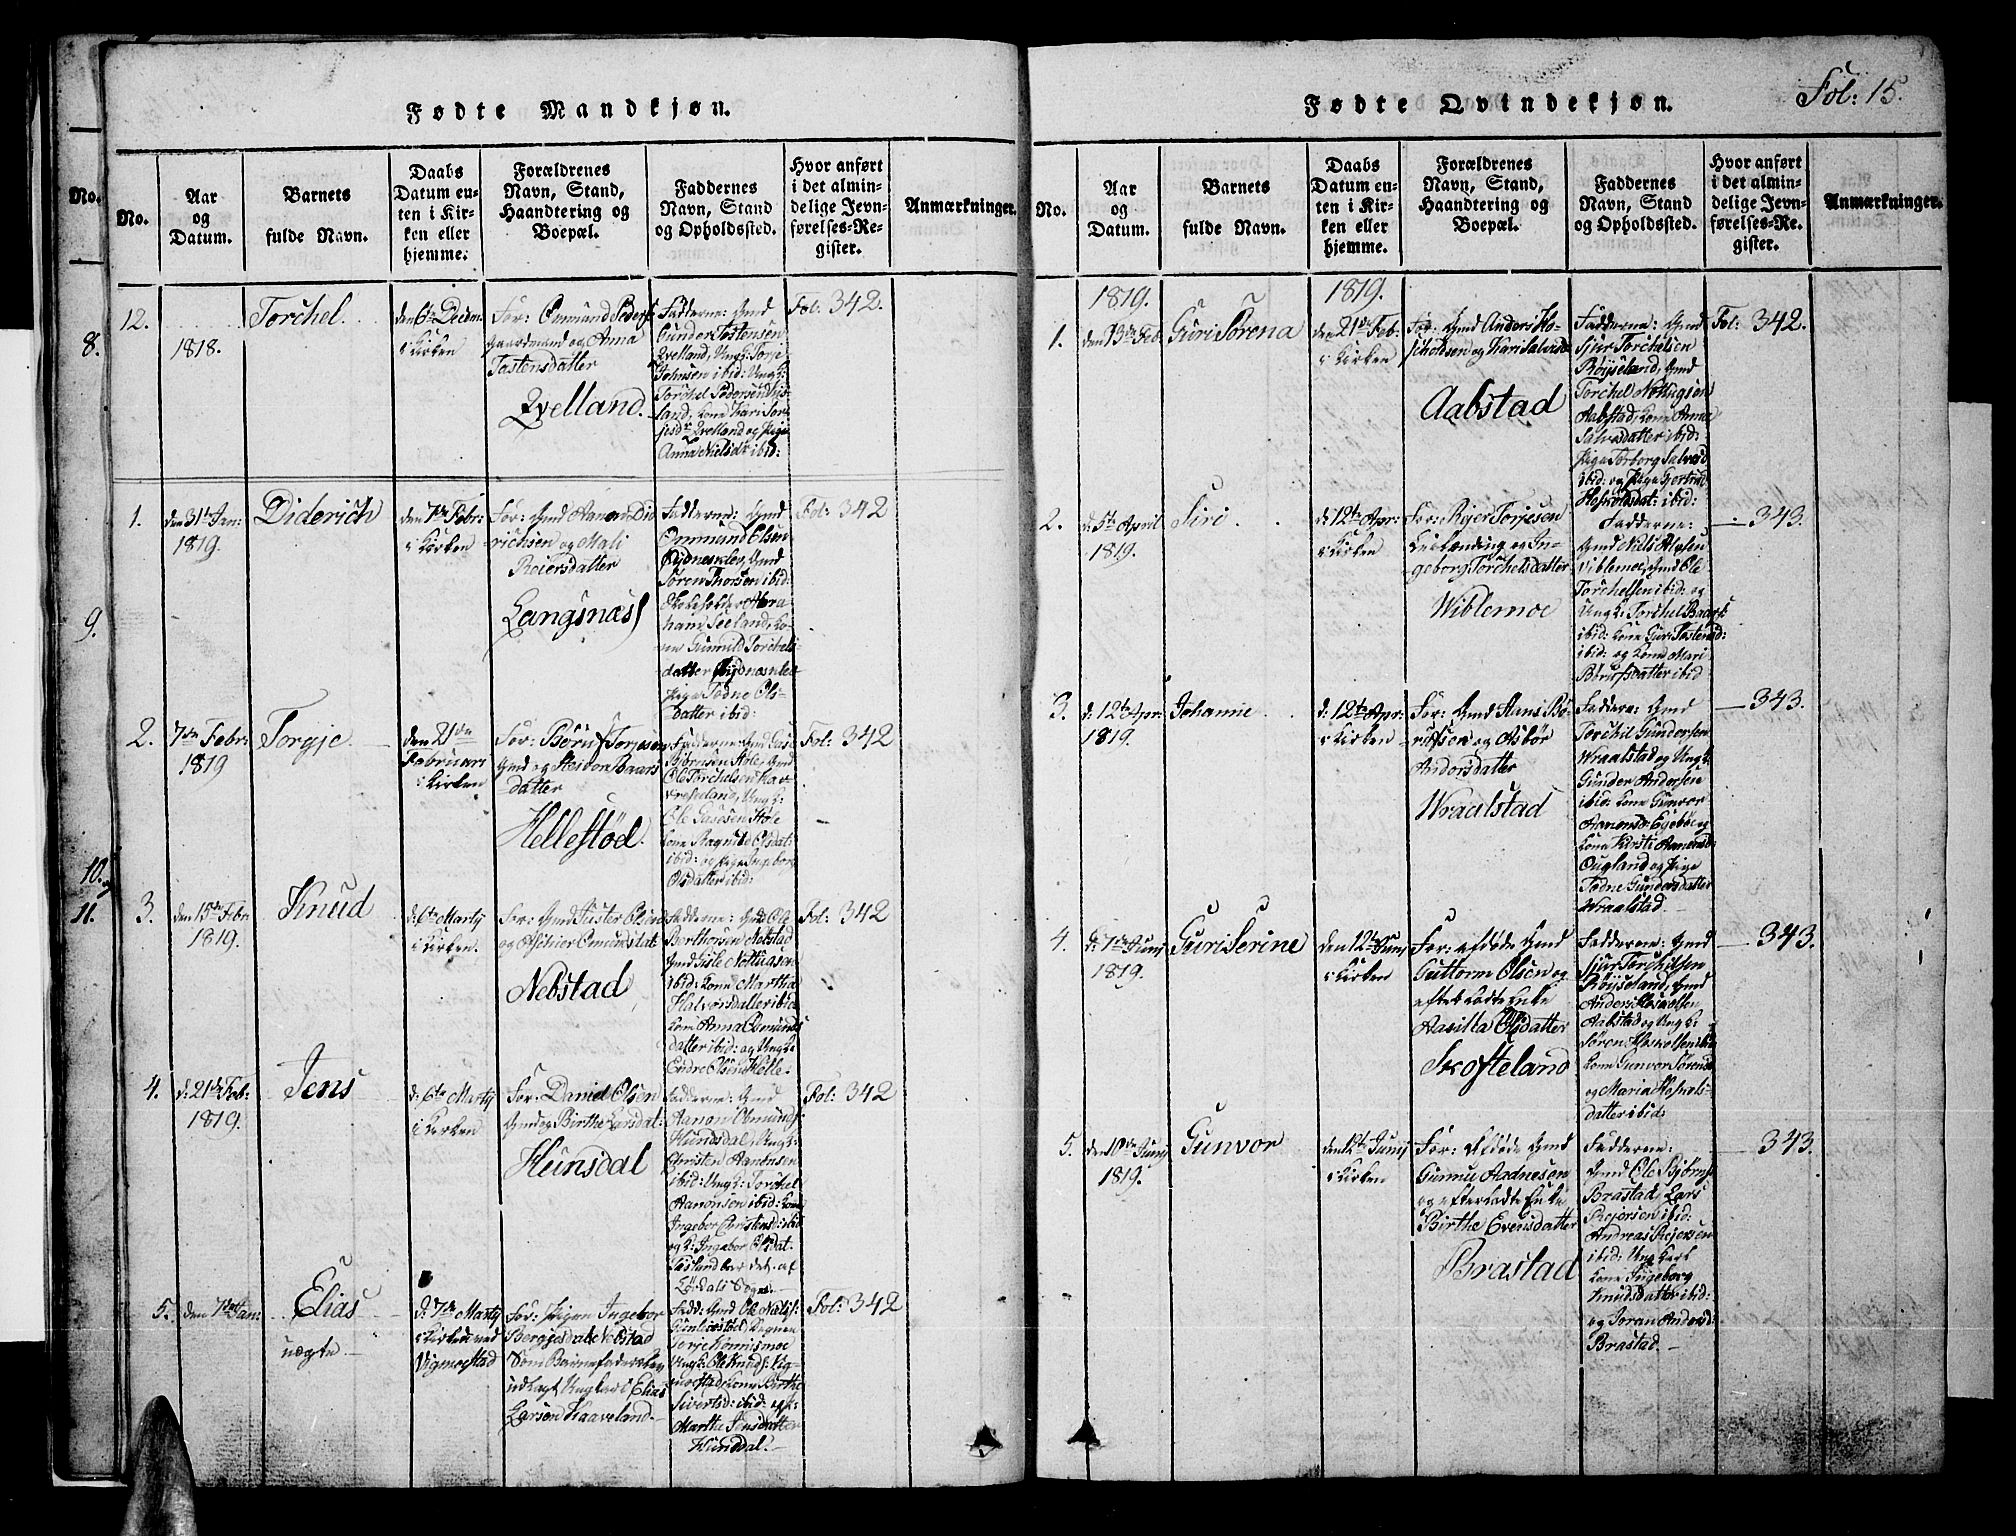 Fødte Mandkjøn.
No.
Aar
og
Datum.
Barnets
fulde Navn.
Daabs
Datum en-
ten i Kir-
ken eller
hjemme.
Forældrenes
Navn, Stand,
Haandtering og
Boepæl.
Faddernes
Navn, Stand
og Opholdssted.
Hvor anført
i det almin-
delige Jevn-
førelses-Re-
gister.
Anmærkninger.
No.
8.
9.
10.
11.
12.
1818.
Torchel.
den 6te Decem.
i Kirken
For: Ommund Peders:
Gaardmand og Anna
Tostensdatter
Qvelland.
Fadderne: Gmd
Gunder Tostensen
Qvelland, Ungk: Torje
Johnsen ibid: Ungk:
Torchel Pedersen
land, Kone Kari
Qvelland og Pige
Anna Nielsdr ibid:
Fol: 342.
1.
den 31te Jan:
1819.
Diderich
den 7de Febr:
i Kirken
For: Gmd Aanen Did
richsen og Mali
Reiersdatter
Langenæs
Fadderne: Gmd
Ommund Olsen
Rydnesklev, Gmd
Søren Thorsen ibid:
Skoleholder Abra
ham Seeland, Ko-
ne Gunnild Torchels
datter Rydnesklev
Pige Todne Ols-
datter ibid:
Fol: 342
2.
7de Febr:
1819
Torgje
den 21de
Februari
i Kirken
For: Børuf Torjesen
Gmd og Steivor Baars
datter
Hellestød.
Fadderne: Gmd
Hole, Gmd
Ole Torchelsen
Ungk:
Hole
Kone Ragnild Olsdat
ibid: og Pige Ingebor
Olsdatter ibid:
Fol: 342
3.
den 15de Febr:
1819.
Knud
d: 6te Martj
i Kirken.
For: Gmd Olsen
og Omundsdat
Nebstad
Fadderne: Gmd Ole
Nebstad
Gmd Gisle Nottugsen
ibid: Kone Martha
Halvorsdatter ibid
Kone Anna Osmunds
datter ibid: og Ungk
Endre Olsen Helle-
Fol: 342
4.
d: 21de Feb:
1819.
Jens
d: 6te Martj
i Kirken
For: Daniel Olsen
Gmd og Birthe Larsdat:
Hunsdal
Fadderne: Gmd
Aanon Osmunds:
Hunsdal, Ungk:
Christen Aanensen
ibid: Ungk: Torchel
Aanonsen ibid: Kone
Ingebor Christensd: ibid
og P: Ingebor Olsdat.
af
Sogn.
Fol: 342
5.
den 7de Jan:
Elias
uægte
d: 7de Martj
i Kirken ved
Vigmostad
For: Pigen Ingebor
Bergjesdat: Nebstad
Som Barnefader blev
udlagt Ungkarl Elias
Larsen Haaveland.
Fadd: Gmd Ole Niels:
Degnen
Terje Konnismoe
Ungk: Ole Knuds: Vig-
mostad, Kone Birthe
Sivertsd: ibid: og P:
Marthe Jensdatter
Hunsdal.
Fol: 342
Fødte Qvindekjøn.
Fol: 15.
No.
Aar
og
Datum.
Barnets
fulde Navn.
Daabs
Datum en-
ten i Kir-
ken eller
hjemme.
Forældrenes
Navn, Stand,
Haandtering og
Boepæl.
Faddernes
Navn, Stand
og Opholdssted.
Hvor anført
i det almin-
delige Jevn-
førelses-Re-
gister.
Anmærkninger.
1819.
1819.
1.
den 13de Feb:
Guri Sorena
den 21de Feb
i Kirken
For: Gmd Anders Ho-
skoldsen og Kari Salvesd
Aabstad
Fadderne: Gmd
Sjur Torchelsen
Røyseland, Gmd
Torchel Nottugsen
Aabstad, Kone Anna
Salvesdatter ibid:
Pige Torborg Salvesd
ibid: og Pige Gertrud
Hoskoldsdat: ibid:
Fol: 342.
2.
d: 5te April
1819.
Siri
d: 12te Apr:
i Kirken
For: Reier Torjesen
og In-
geborg Torchelsdatter
Wiblemoe
Fadderne:
Gmd Niels
Viblemoe, Gmd Ole
Torchelsen ibid: og
Ungk: Torchel Baars:
ibid: Kone Guri Tostensd:
ibid: og Kone Mari
Børufsdatter ibid
343.
3.
d: 12te Apr:
1819.
Johanne
d: 12te Apr:
i Kirken
For: Gmd Hans Bø-
rufsen og Asbør
Andersdatter
Wraalstad
Fadderne: Gmd
Torchil Gundersen
Wraalstad og Ungk:
Gunder Andersen
ibid: Kone Gunvor
Aanensd: Eyebøe og
Kone Kirsti Aanensd:
Ougland og Pige
Todne Gundersdatter
Wraalstad
343.
4.
d: 7de Junj
1819.
Guri Serine
den 12te Junj
i Kirken
For: afdøde Gmd
Guttorm Olsen og
efterladte Enke
Aasilla Olsdatter
Skofteland
Fadderne: Gmd
Sjur Torchilsen
Røyseland, Gmd
Anders Hoskolsen
Aabstad og Ungk:
Søren Hoskolsen ibid
Kone Gunvor Sørensd
og Maria Hoskols-
datter ibid:
343.
5.
den 10de Junj
1819.
Gunvor
den 12te Junj
i Kirken
For: Afdøde Gmd
Gunnu Aadnesen
og efterladte Enke
Birthe Evensdatter
Brastad
Fadderne:
Gmd Ole Bjørns:
Brastad, Lars
Reiersen ibid:
Andreas Reiersen
ibid: Ung Karl
Kone Ingeborg
Knudsdatter ibid:
og Joran Andersd:
Brastad.
343.